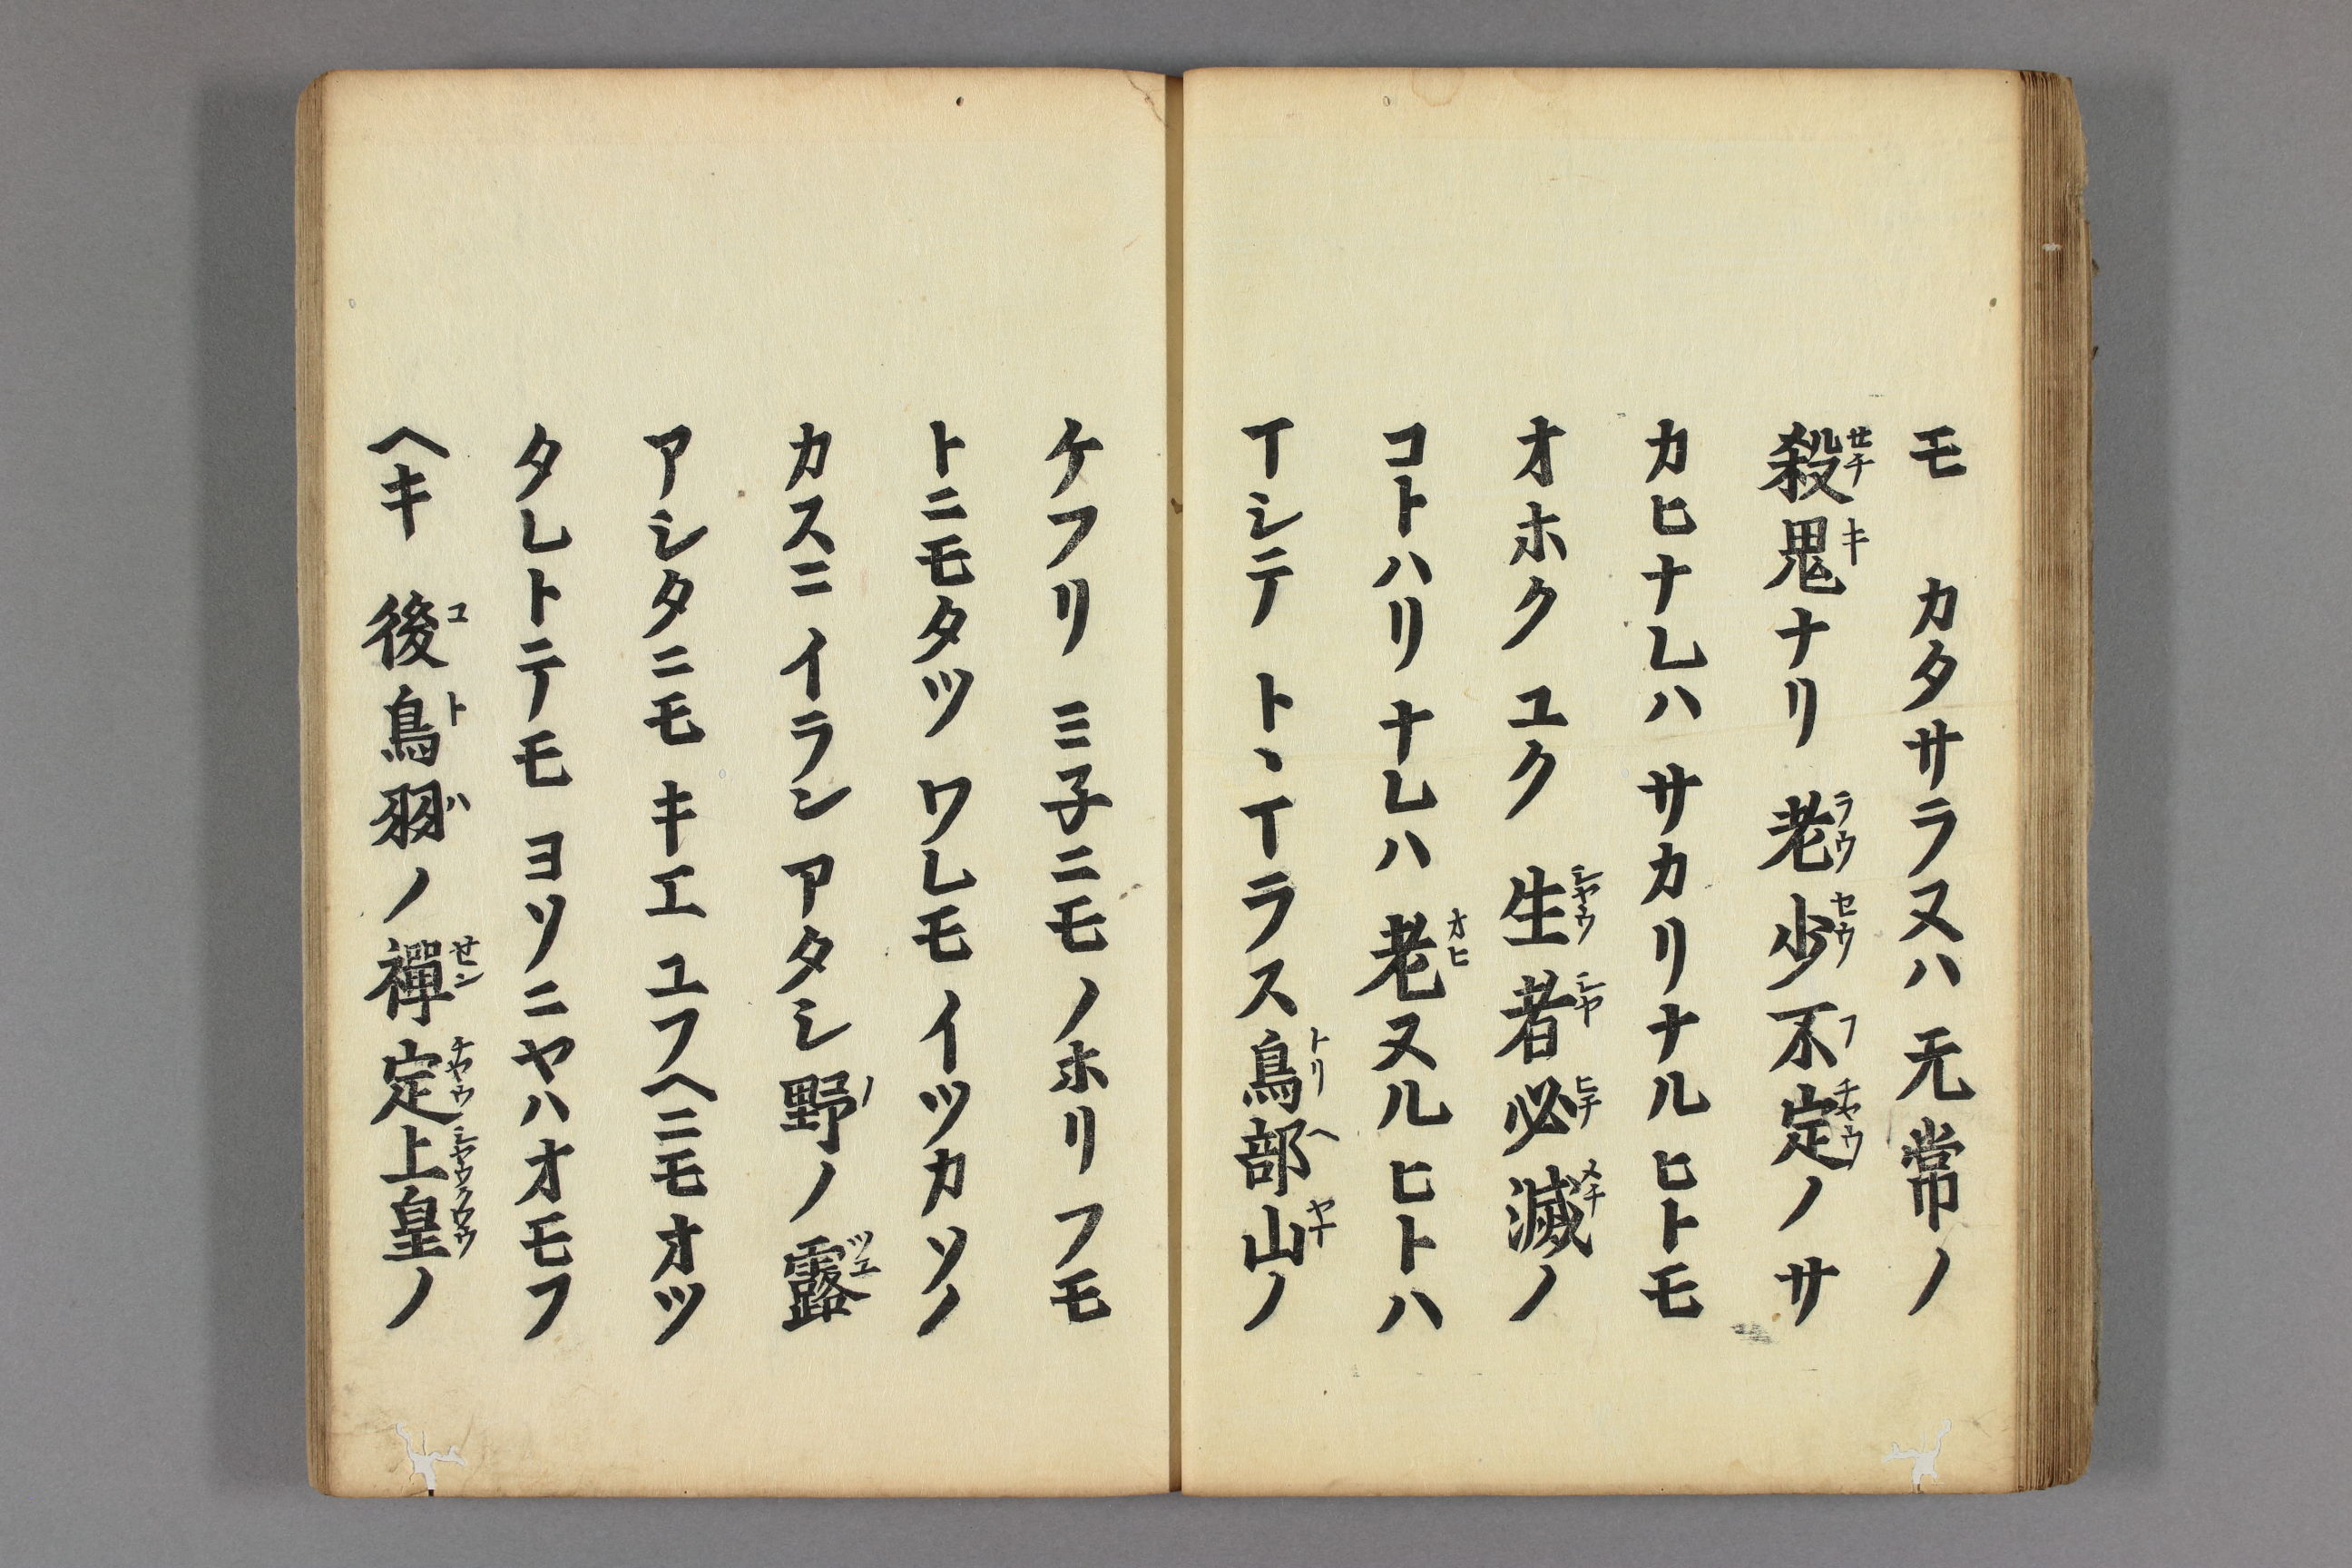 モ カタサラヌハ 无常ノ
殺鬼ナリ 老少不定ノサ
カヒナレハ サカリナルヒトモ
オホク ユク 生者必滅ノ
コトハリ ナレハ 老ヌル ヒトハ
イシテ トヽイラス 鳥部山ノ
ケフリ ミ子ニモ ノホリ フモ
トニモタツ ワレモ イツカソノ
カスニ イラン アタシ 野ノ 露
アシタニモ キエ ユフヘニモ オツ
タレトテモ ヨソニヤハオモフ
ヘキ 後鳥羽ノ 禪定上皇ノ